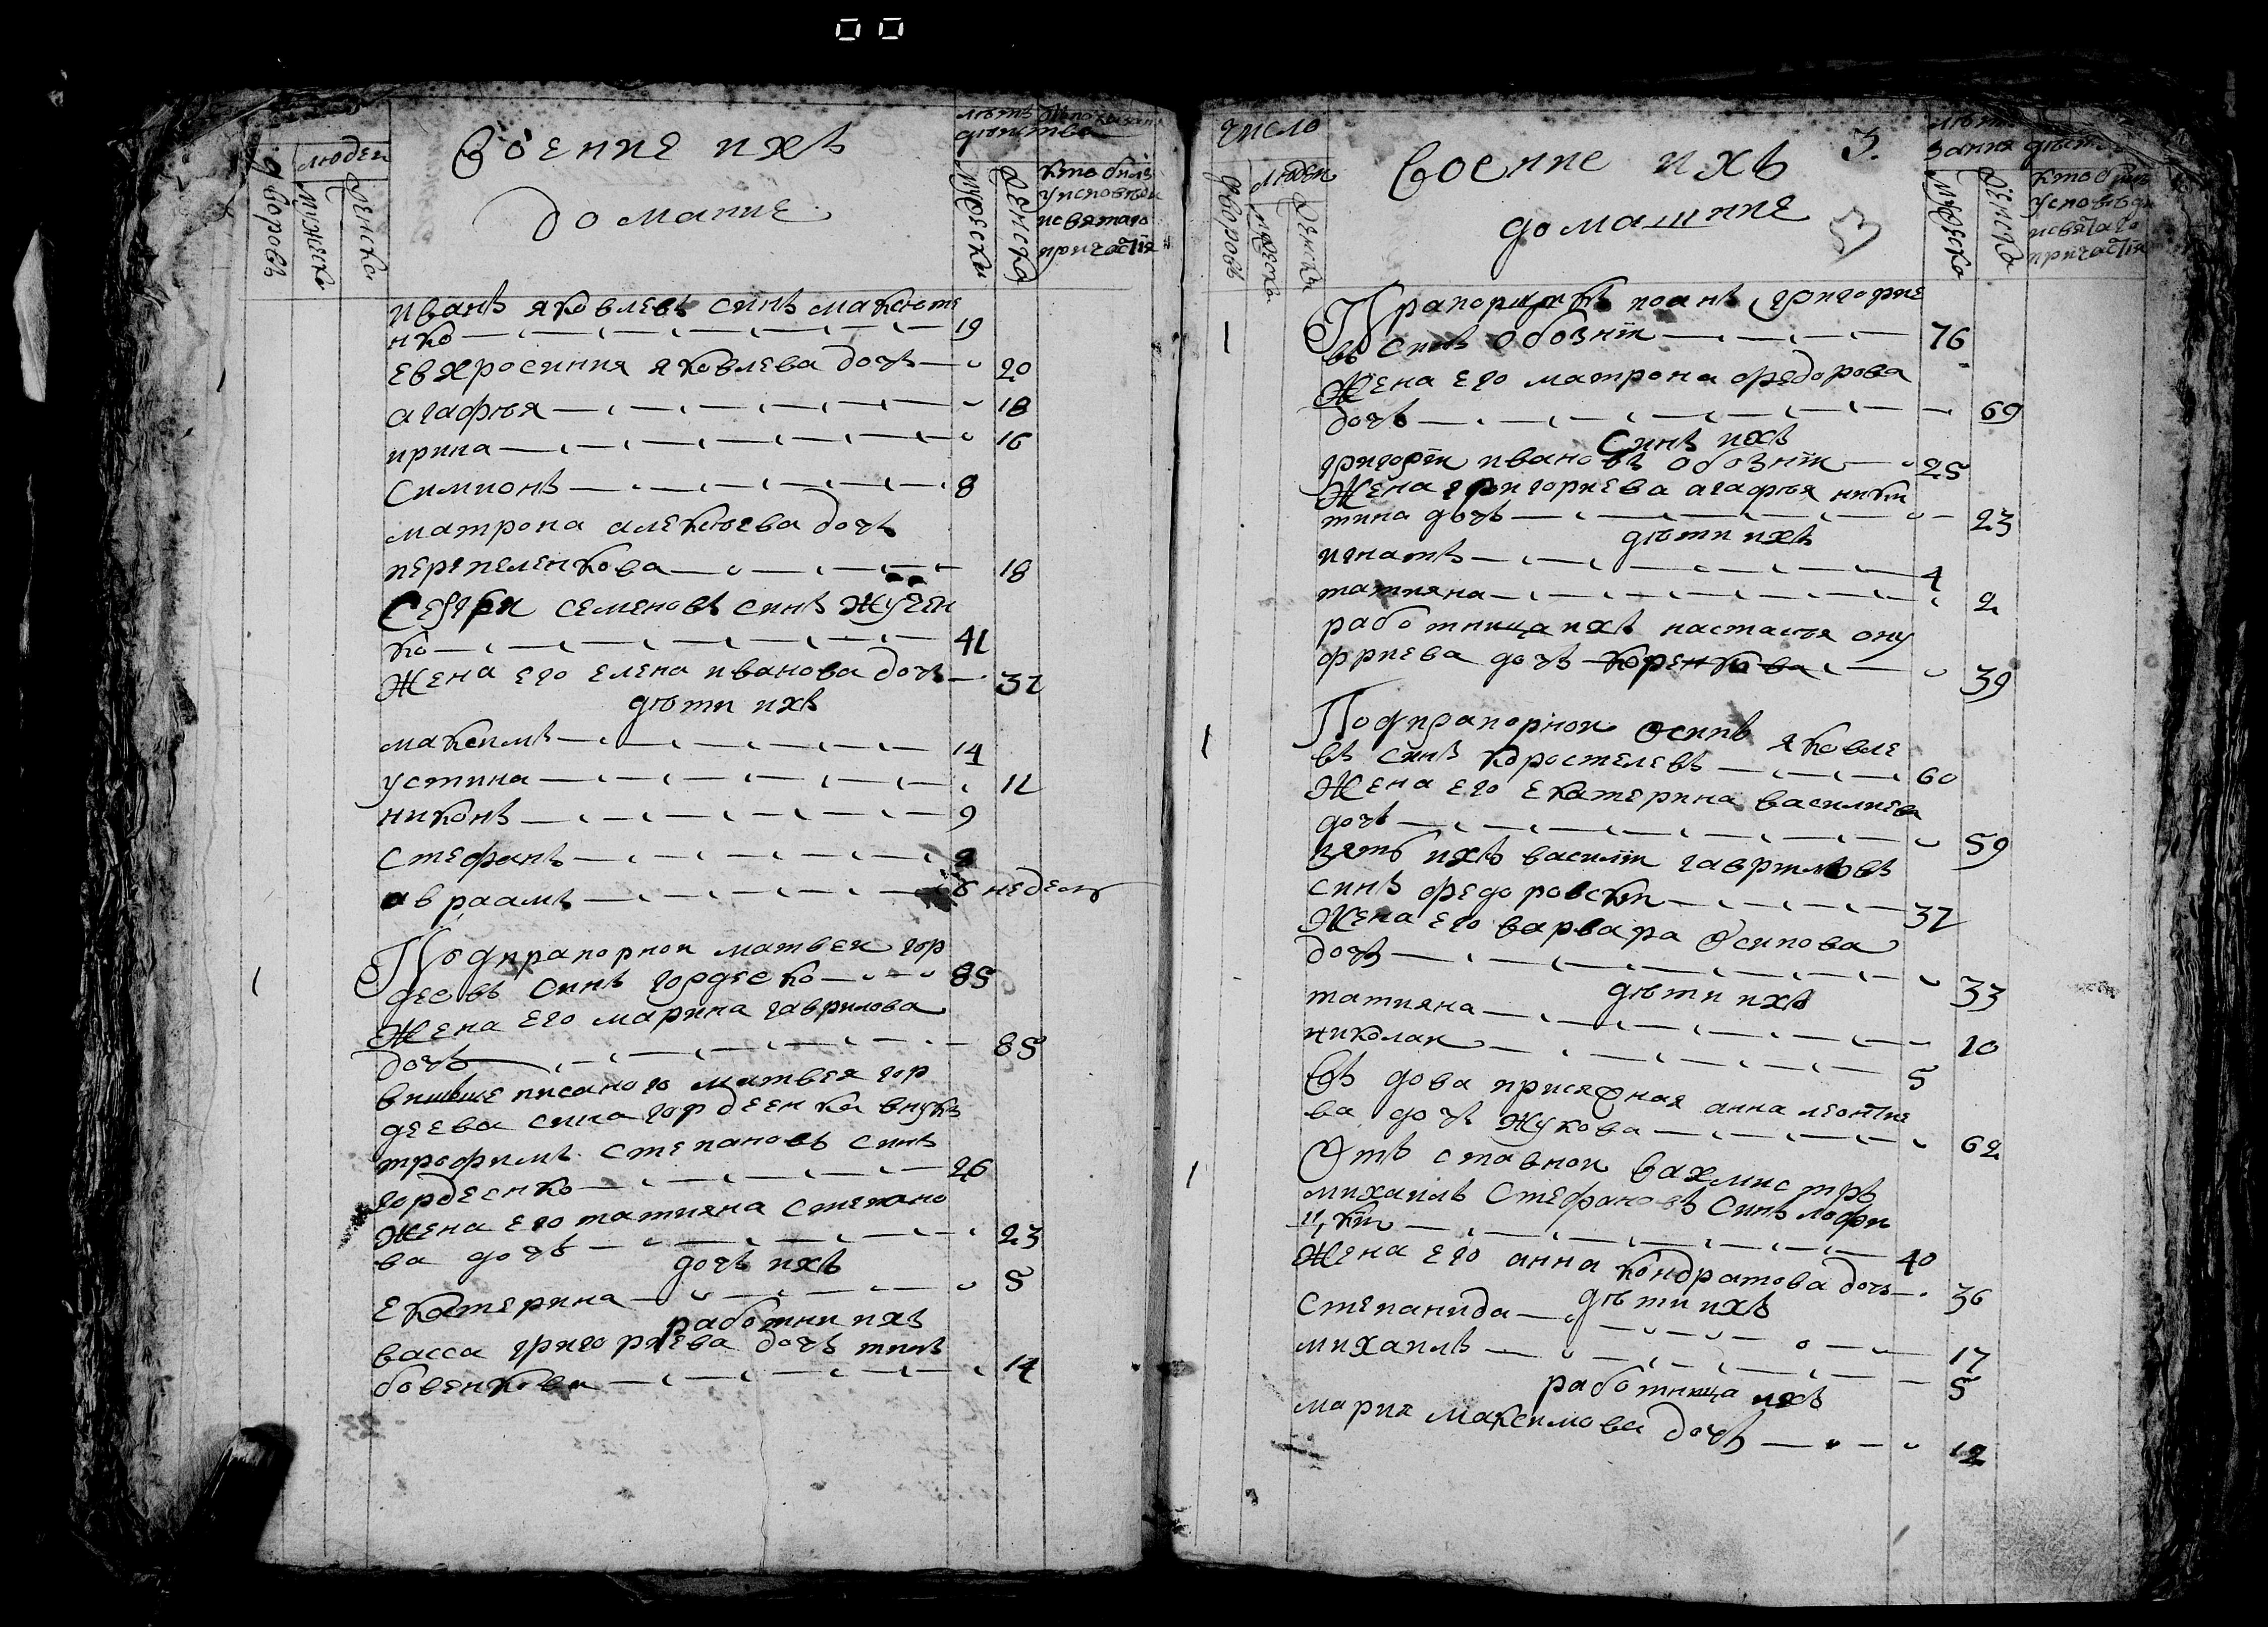 дворовъ
людеи
мужеска
женска
воение ихъ
домашние
летъ
действа
мужеска
женска
кто былъ
у исповѣди
и святаго
причастїя
иванъ яковлевъ синъ макснте
нко 19
евхросиния яковлева дочъ 20
агафѣя 18
ирина 16
симионъ 8
матрона алексѣева дочъ
перепеленкова 18
семеновъ синъ жучен
ко 41
жена его елена иванова дочъ 32
дѣти ихъ
максимъ 14
устина 12
никонъ 9
стефанъ
авраамъ 6 неделъ
1
Подпрапорнои матвеи гор
деевъ синъ гордеско 85
жена его марина гаврилова
дочъ 85
вишше писаного матвея гор
деева сина гордеенка внукъ
трофимъ степановъ синъ
гордеенко 26
жена его татияна степано
ва дочъ 23
дочъ ихъ
екатерина 5
работни ихъ
васса григориева дочъ тим
бовенкова 14
число
дворовъ
людеи
мужеска
женска
воение ихъ 3.
домашние
лѣт
зания дѣст
мужеска
женска
кто был
у исповѣди
и свѧтаго
причастїя
1
Прапорщикъ иоанъ григорие
въ синъ обознїи 76
жена его матрона федорова
дочъ 69
синъ ихъ
григорїи ивановъ обознїи 25
жена григориева агафѣя ники
тина дочъ 23
дѣти ихъ
игнатъ 4
татияна 2
работница ихъ настасѣя ону
фриева дочъ коренкова 39
1
Подпрапорнои осипъ яковле
въ синъ коростелевъ 60
жена его екатерина василиева
дочъ 59
зять ихъ василїи гавриловъ
синъ федоровскїи 37
жена его варвара осипова
дочъ 33
дѣти ихъ
татияна 10
николаи 5
въдова присяжная анна леонтие
ва дочъ жукова 62
1
Отъставнои вахмистръ
михаилъ стефановъ синъ лофи
цкїи 40
жена его анна кондратова дочъ 36
дѣти ихъ
степанида 17
михаилъ 5
работница ихъ
мария максимова дочъ 12